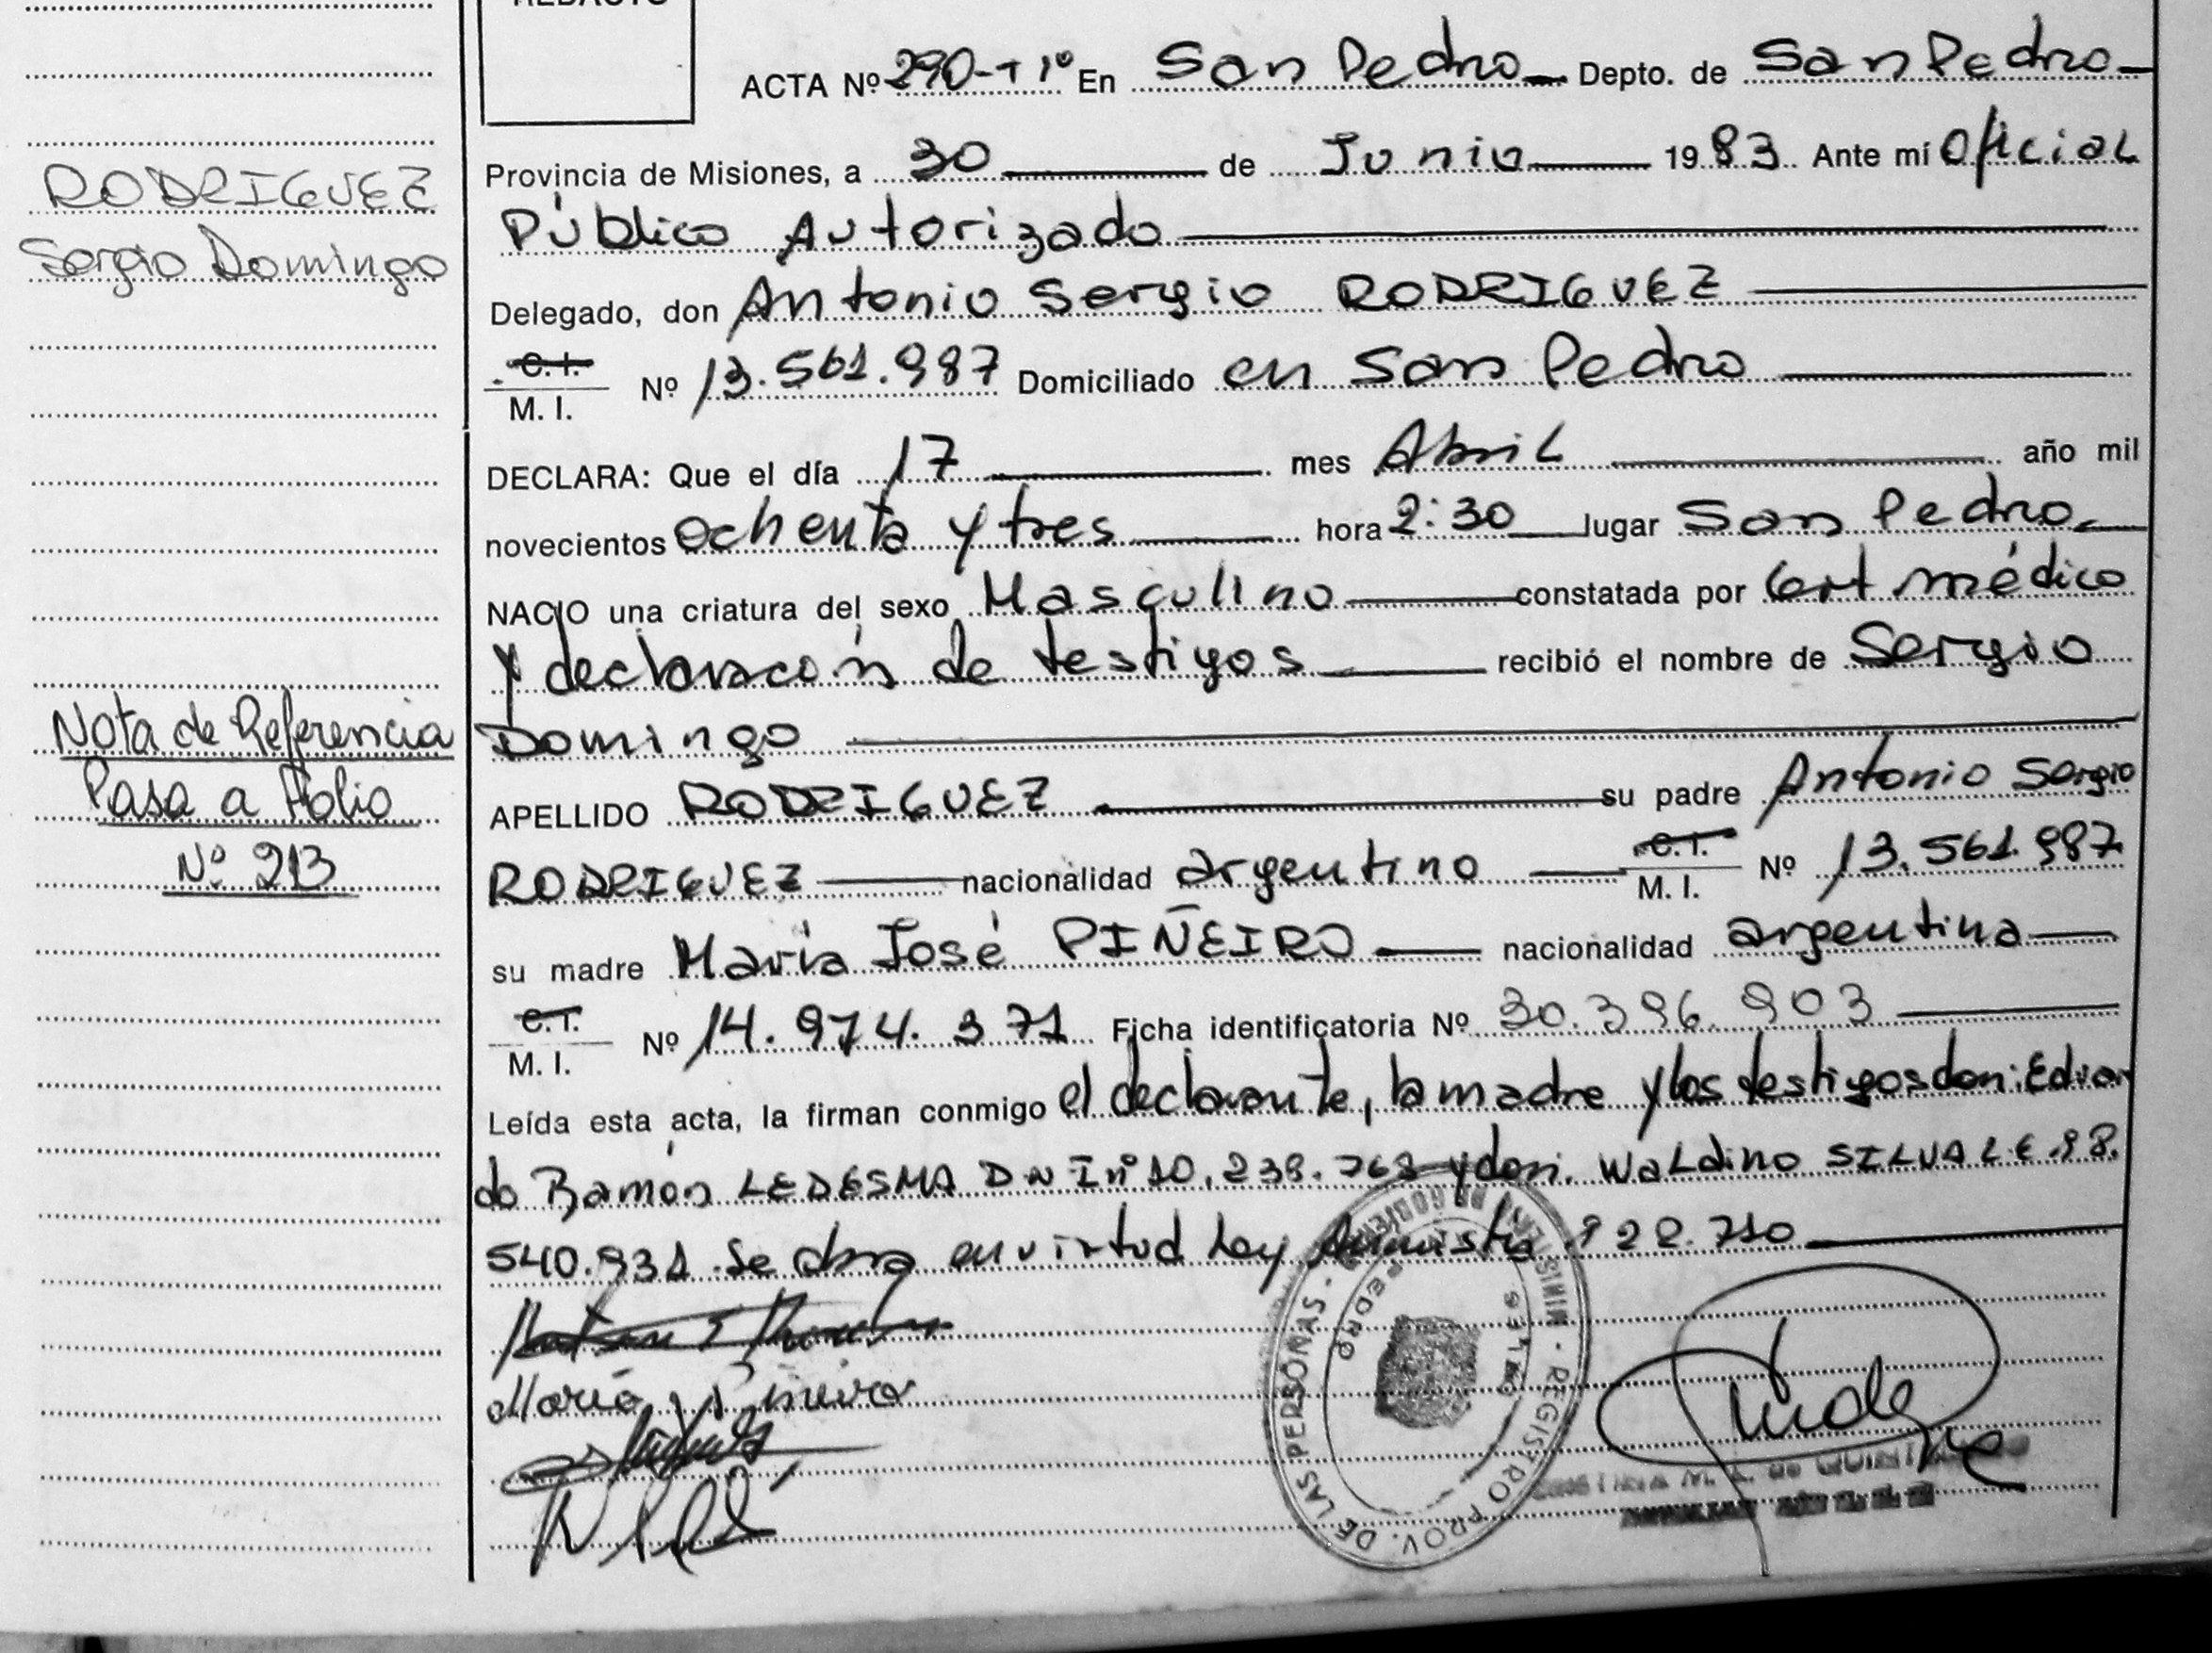 ACTA Nº 290-T1º En San Pedro Depto. de San Pedro
Provincia de Misiones, a 30 de Junio 1983 Ante mí Oficial
Público Autorizado
Delegado, don Antonio Sergio RODRIGUEZ
C. I.
M. I. Nº 13.561.987 Domiciliado en San Pedro
DECLARA: Que el día 17 mes Abril año mil
novecientos ochenta y tres hora 2:30 lugar San Pedro
NACIO una criatura del sexo Masculino constatada por Cert médico
y declaración de testigos recibió el nombre de Sergio
Domingo
APELLIDO RODRIGUEZ su padre Antonio Sergio
RODRIGUEZ nacionalidad argentino C. I. M. I. Nº 13.561.987
su madre María José PIÑEIRO nacionalidad argentina
C. I.
M. I. Nº 14.974.371 Ficha identificatoria Nº 30.396.903
Leída esta acta, la firman conmigo el declarante, la madre y los testigos don: Eduar
do Ramón LEDESMA DNI nº 10.238.768 y don. Waldino SILVA L E
540.931 Se obra en virtud Ley Amnistía 22.710
María Piñeiro
REGISTRO PROV. DE LAS PERSONAS
RODRIGUEZ
Sergio Domingo
Nota de Referencia
Pasa a Folio
Nº 213